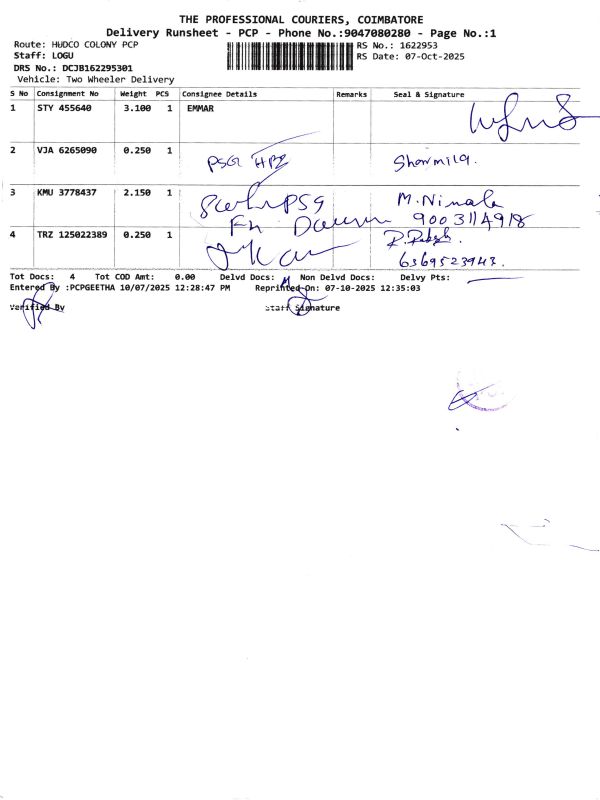 THE PROFESSIONAL COURIERS, COIMBATORE
Delivery Runsheet - PCP - Phone No.:9047080280 - Page No.:1
Route: HUDCO COLONY PCP
RS No.: 1622953
Staff: LOGU
RS Date: 07-Oct-2025
DRS No.: DCJB162295301
Vehicle: Two Wheeler Delivery
S No Consignment No Weight PCS Consignee Details Remarks Seal & Signature
1 STY 455640 3.100 1 EMMAR
2 VJA 6265090 0.250 1
PSG Sharmila.
3 KMU 3778437 2.150 1
PSG M. Nimala
9003114918
4 TRZ 125022389 0.250 1
6369523943.
Tot Docs: 4 Tot COD Amt: 0.00 Delvd Docs: 4 Non Delvd Docs: Delvy Pts:
Entered By :PCPGEETHA 10/07/2025 12:28:47 PM Reprinted On: 07-10-2025 12:35:03
Verified By Staff Signature